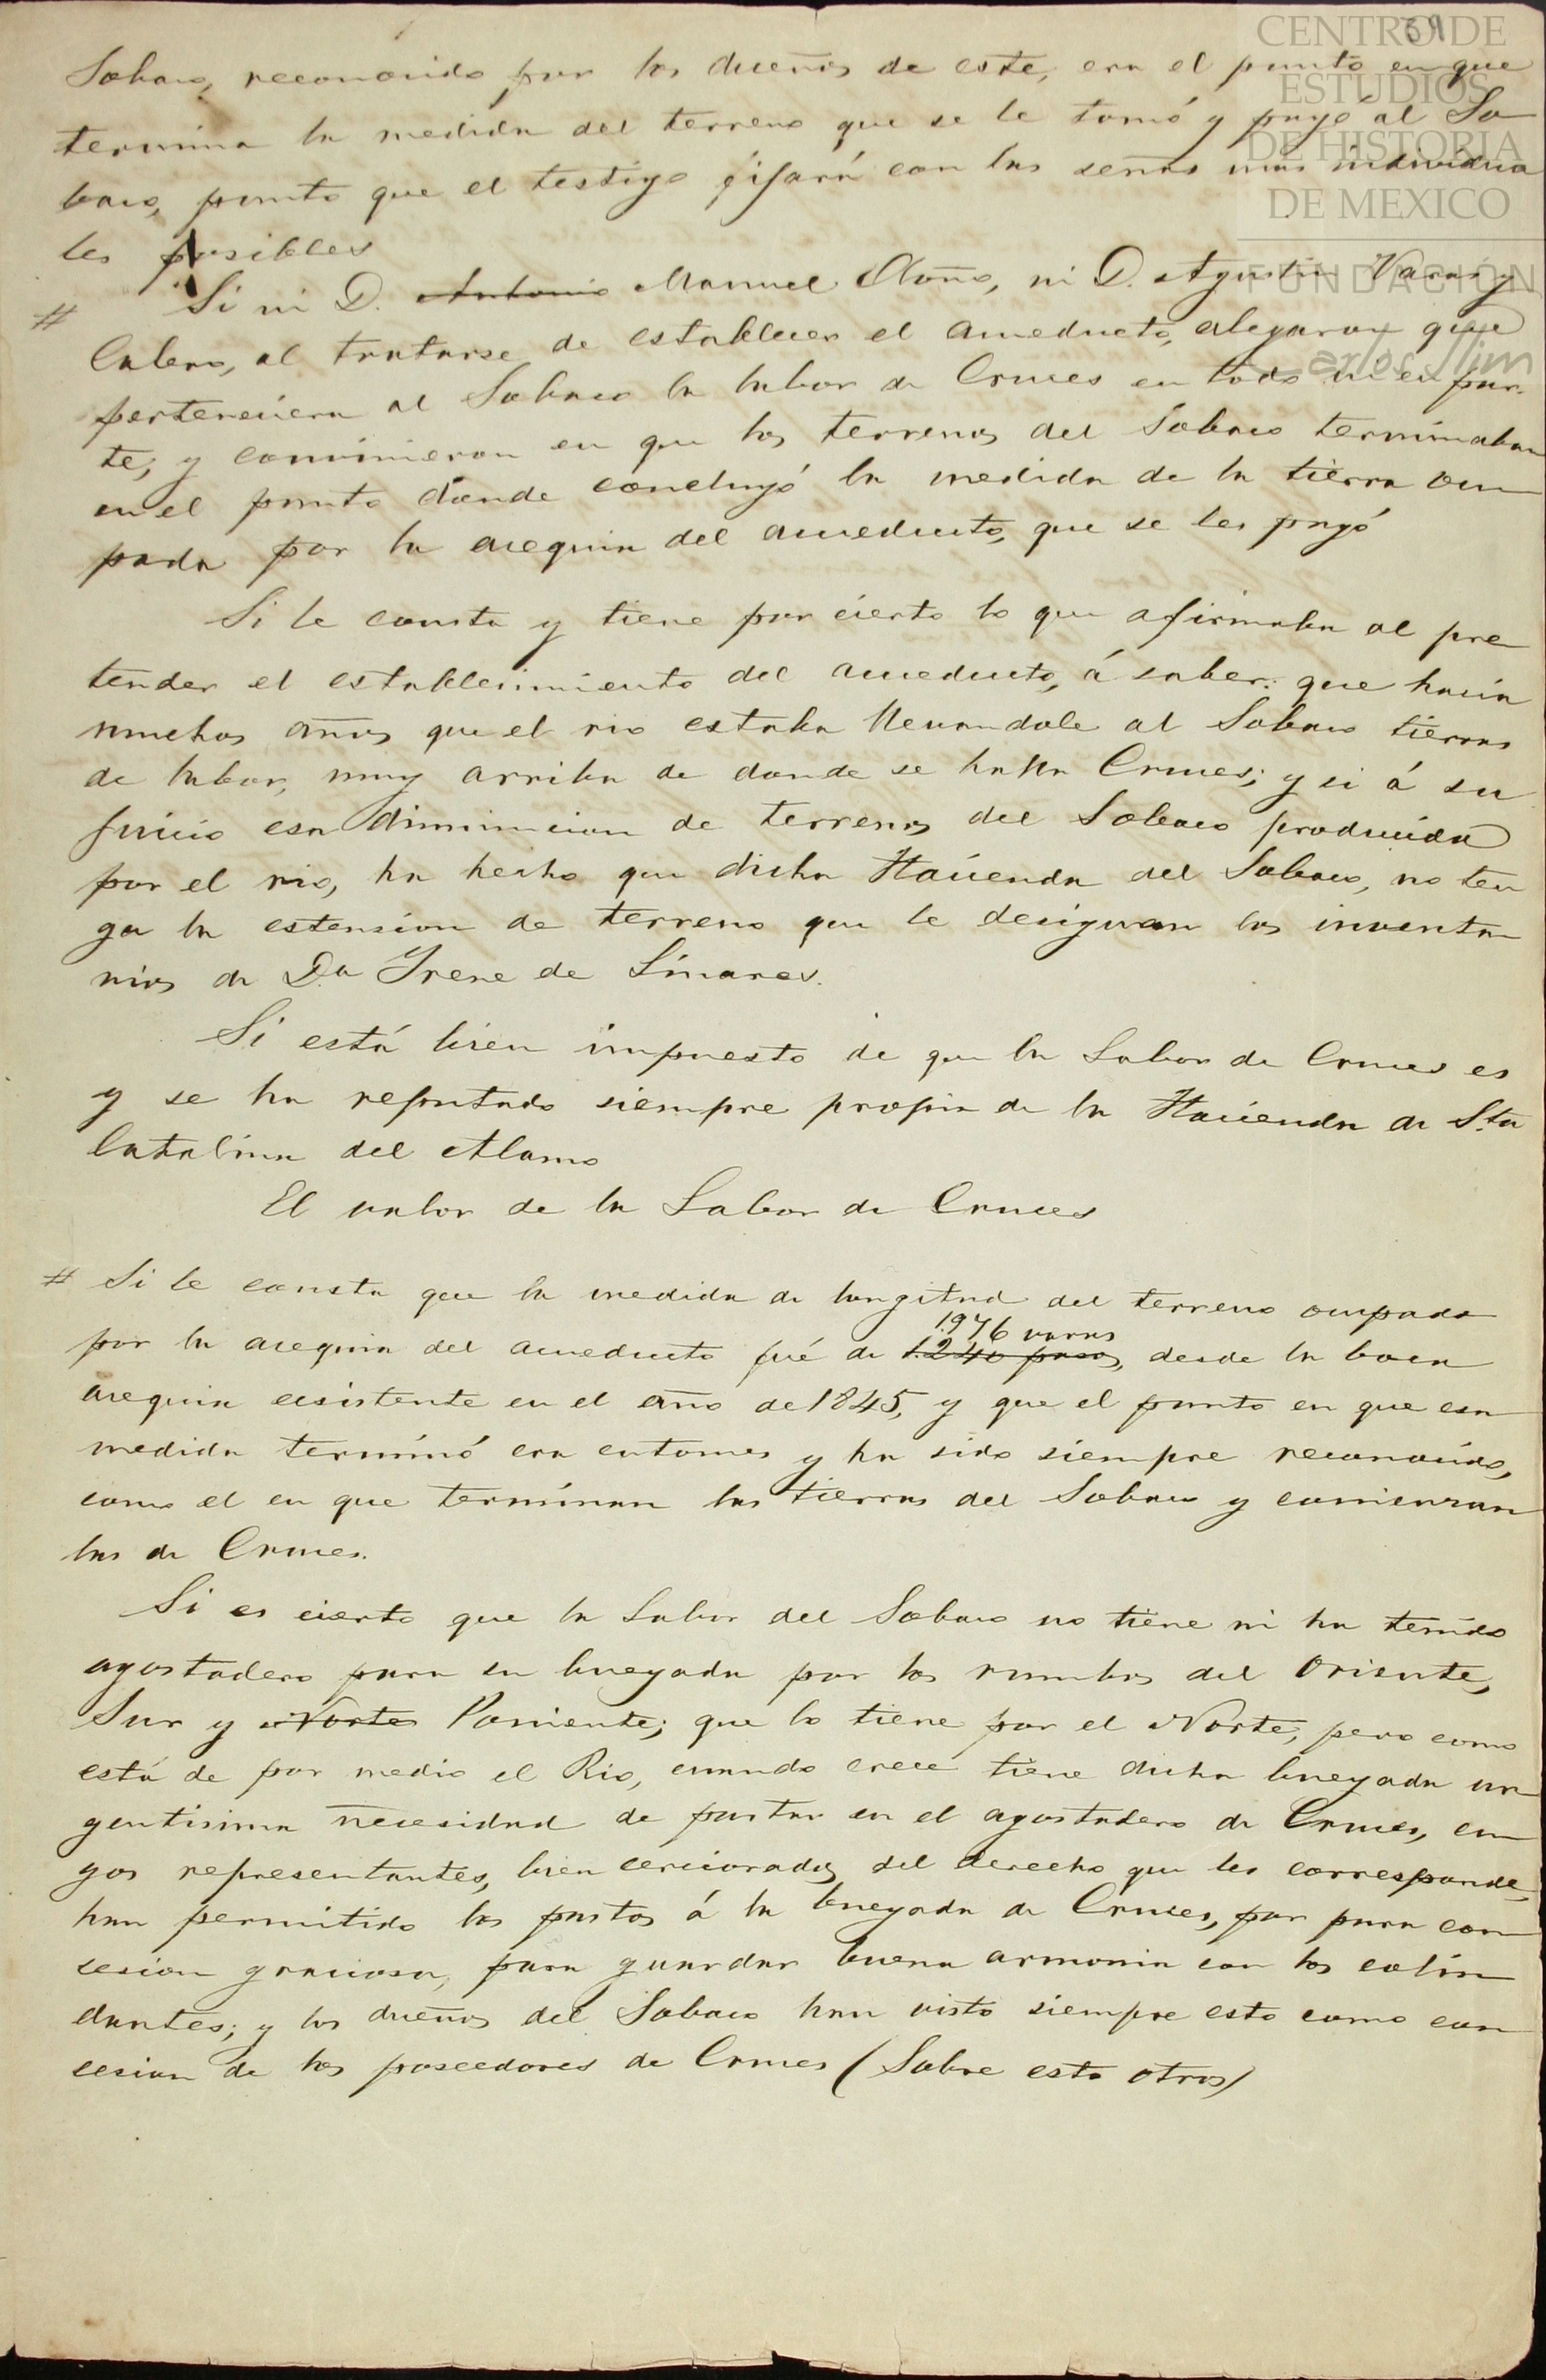 39
CENTRO DE
ESTUDIOS
DE HISTORIA
DE MEXICO
FUNDACIÓN
Carlos Slim
Sobaco, reconocido por los dueños de este, era el punto en que
termina la medida del terreno que se le tomó y pagó al So
baco, punto que el testigo fijará con las señas mas individua
les posibles
# Si ni D. Antonio Manuel Otoño, ni D. Agustin Varas y
Calero, al tratarse de establecer el acueducto, alegaron que
perteneciera al Sobaco la labor de Cruces en todo ni en par-
te; y convinieron en que los terrenos del Sobaco terminaban
en el punto donde concluyó la medida de la tierra ocu
pada por la acequia del acueducto, que se les pagó
Si le consta y tiene por cierto lo que afirmaba al pre
tender el establecimiento del acueducto, á saber: que hacia
muchos años que el rio estaba llevandole al Sobaco tierras
de labor, muy arriba de donde se halla Cruces; y si á su
juicio esa diminucion de terrenos del Sobaco producida
por el rio, ha hecho que dicha Hacienda del Sobaco, no ten
ga la estension de terreno que le designan los inventa
rios de D.a Yrene de Linares.
Si está bien impuesto de que la Labor de Cruces es
y se ha reputado siempre propia de la Hacienda de S.ta
Catalina del Alamo
El valor de la Labor de Cruces
# Si le consta que la medida de longitud del terreno ocupado
1.976 varas
por la acequia del acueducto fué de 1.240 pasos, desde la boca
acequia ecsistente en el año de 1845, y que el punto en que esa
medida terminó era entonces y ha sido siempre reconocido,
como el en que terminan las tierras del Sobaco y comienzan
las de Cruces.
Si es cierto que la Labor del Sobaco no tiene ni ha tenido
agostadero para su bueyada por los rumbos del Oriente,
Sur y Norte Poniente; que lo tiene por el Norte, pero como
está de por medio el Rio, cuando crece tiene dicha bueyada ur
gentisima necesidad de pastar en el agostadero de Cruces, cu
yos representantes, bien cerciorados del derecho que les corresponde,
han permitido los pastos á la bueyada de Cruces, por pura con
cesion graciosa, para guardar buena armonia con los colin
dantes; y los dueños del Sobaco han visto siempre esto como con
cesion de los poseedores de Cruces (Sobre esto otros)